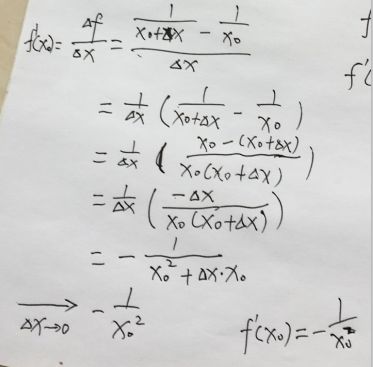 f'(x₀) = Δf/Δx = (1/(x₀+Δx) - 1/x₀)/Δx
= 1/Δx (1/(x₀+Δx) - 1/x₀)
= 1/Δx ((x₀-(x₀+Δx))/(x₀(x₀+Δx)))
= 1/Δx (-Δx/(x₀(x₀+Δx)))
= - 1/(x₀²+Δx·x₀)
→ Δx→0 - 1/x₀²
f'(x₀) = - 1/x₀²
f
f'(